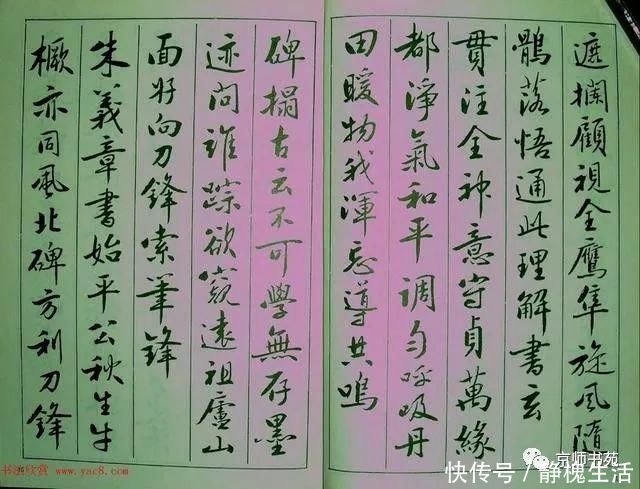 遮攔顧視全鷹隼旋風隨
鶻落悟通此理解書玄
貫注全神意守貞萬緣
都淨氣和平調勻呼吸丹
田暖物我渾忘導共鳴
碑搨古云不可學無存墨
迹問誰踪欲窺遠祖廬山
面好向刀鋒索筆鋒
朱義章書始平公秋生牛
橛亦同風北碑方利刀鋒
书法欣赏 www.yac8.com
京师书苑
快传号/静槐生活